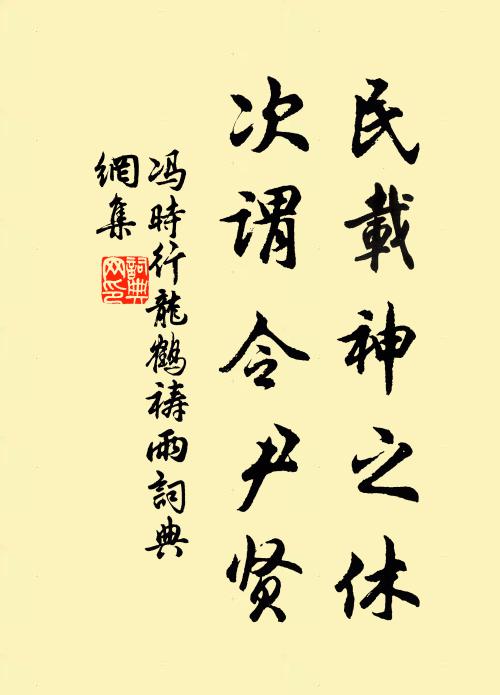 民載神之休
次謂令尹贤
冯時行龍鶴祷雨詞典
網集
詞典
网印